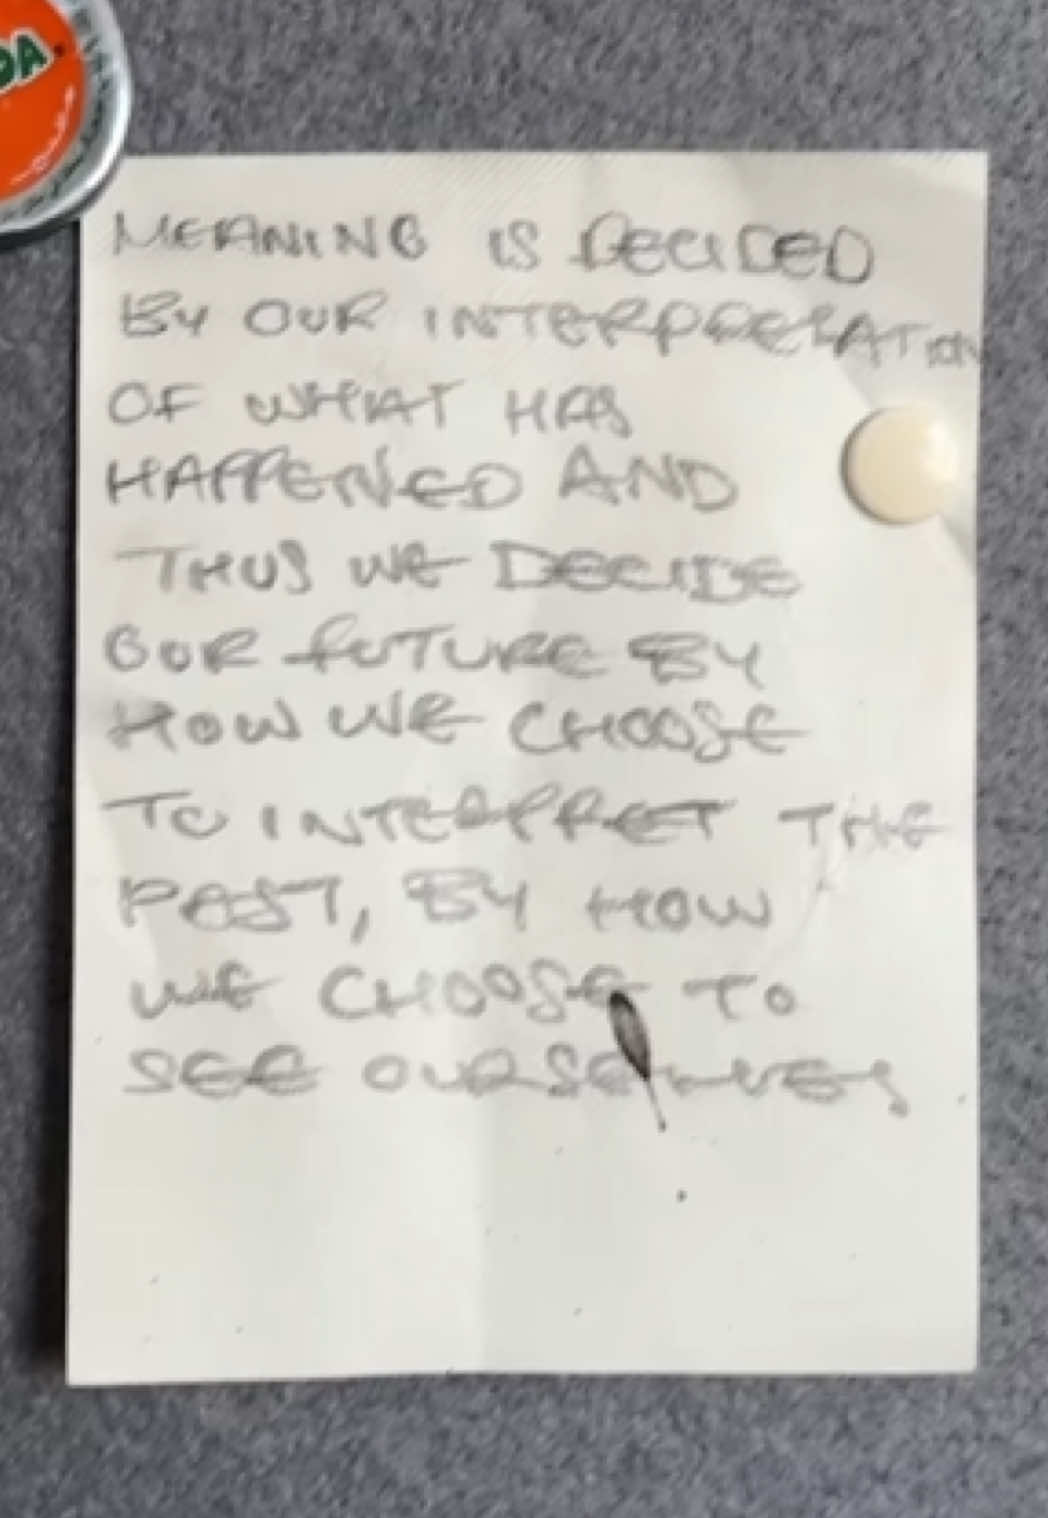 DA
MEANING IS DECIDED
BY OUR INTERPRETATION
OF WHAT HAS
HAPPENED AND
THUS WE DECIDE
OUR FUTURE BY
HOW WE CHOOSE
TO INTERPRET THE
PAST, BY HOW
WE CHOOSE TO
SEE OURSELVES.